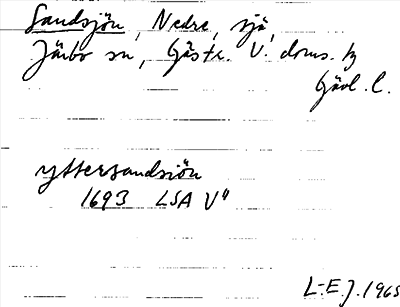 Sandsjön, Nedre, sjö,
Järbo sn, Gästr. V. doms. hg
Gävl. l.
yttersandsiön
1693 LSA V"
L-E J. 1965